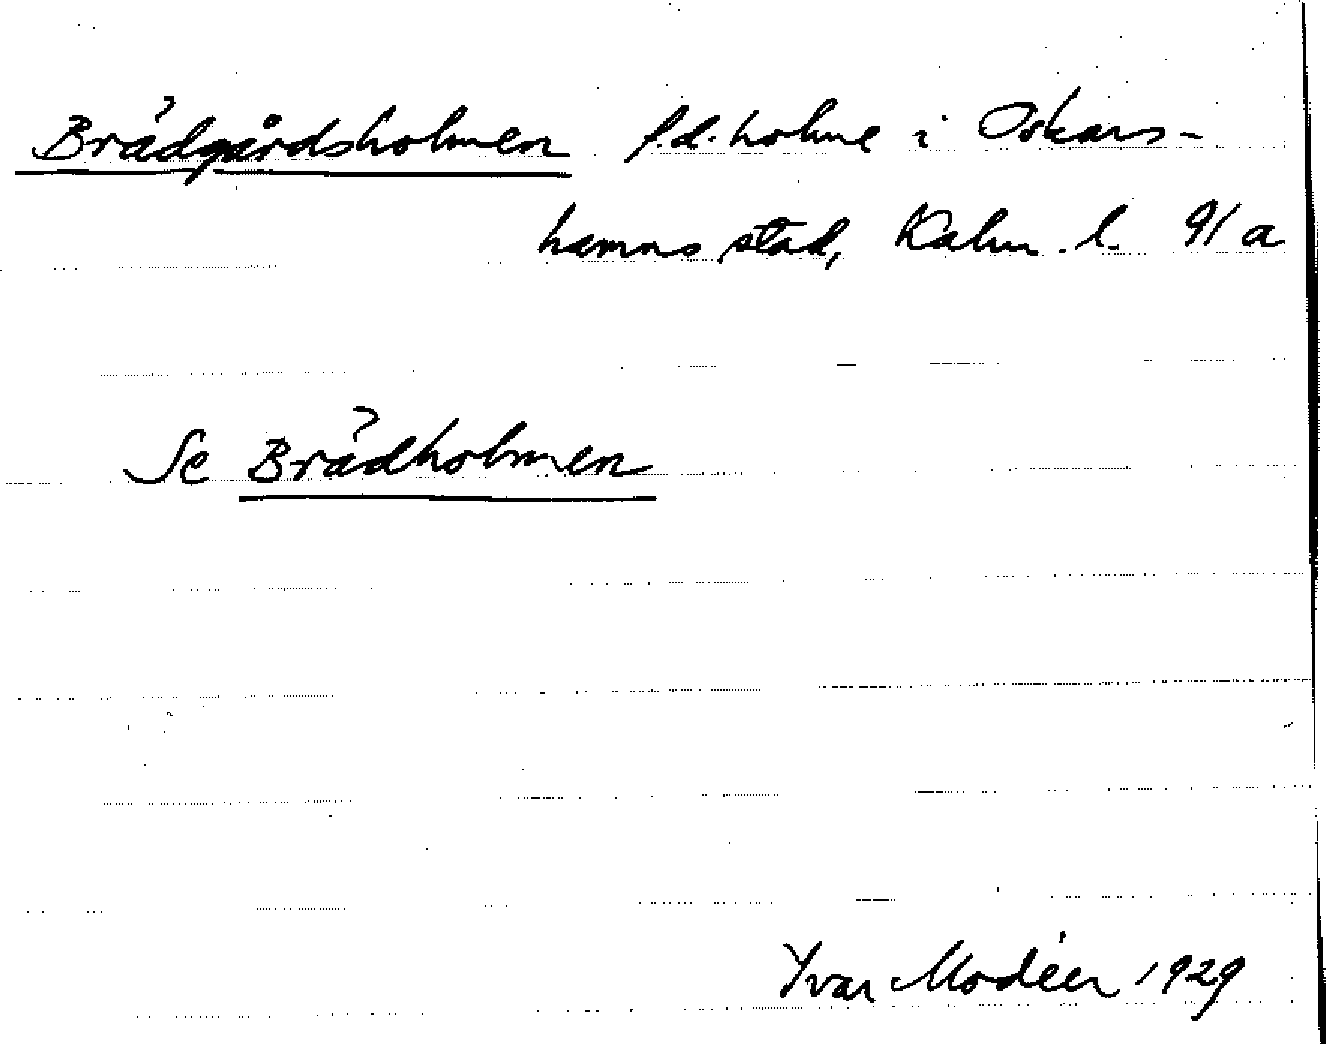 Brädgårdsholmen f.d. holme i Oskars-
hamns stad, Kalm. l. 91a
Se Brädholmen
Ivar Modéer 1929